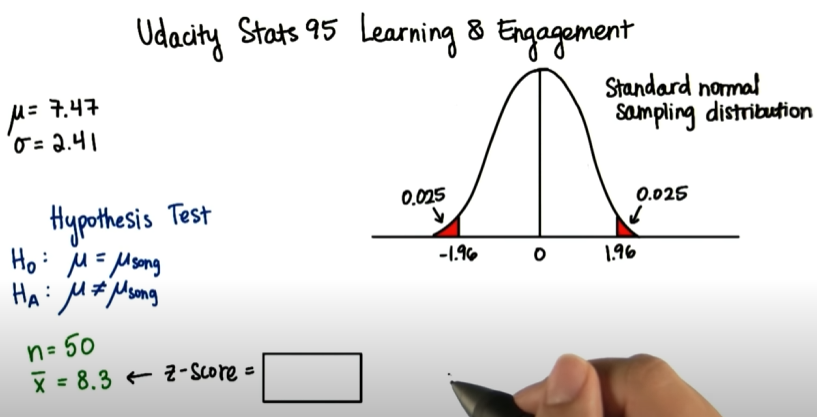 Udacity Stats 95 Learning & Engagement
μ = 7.47
σ = 2.41
Standard normal
sampling distribution
0.025
0.025
-1.96
0
1.96
Hypothesis Test
H₀: μ = μsong
Hᴀ: μ ≠ μsong
n = 50
x̄ = 8.3 ← z-score =